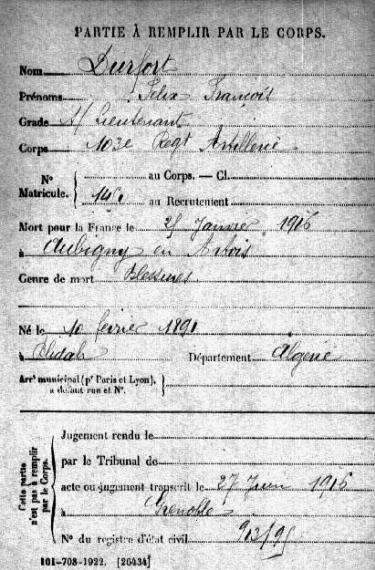 PARTIE À REMPLIR PAR LE CORPS.
Nom Durfort
Prénoms Félix François
Grade S/ Lieutenant
Corps 103e Regt Artillerie
N° Matricule. { au Corps. — Cl.
146. au Recrutement
Mort pour la France le 25 Janvier 1916
à Aubigny en Artois
Genre de mort Blessures
Né le 10 février 1891
à Blidah Département Algérie
Arrt municipal (pr Paris et Lyon), à défaut rue et N°. {
Cette partie n'est pas à remplir par le Corps. {
Jugement rendu le
par le Tribunal de
acte ou jugement transcrit le 27 Juin 1916
à Grenoble
N° du registre d'état civil 903/95
101-708-1922. [26434]